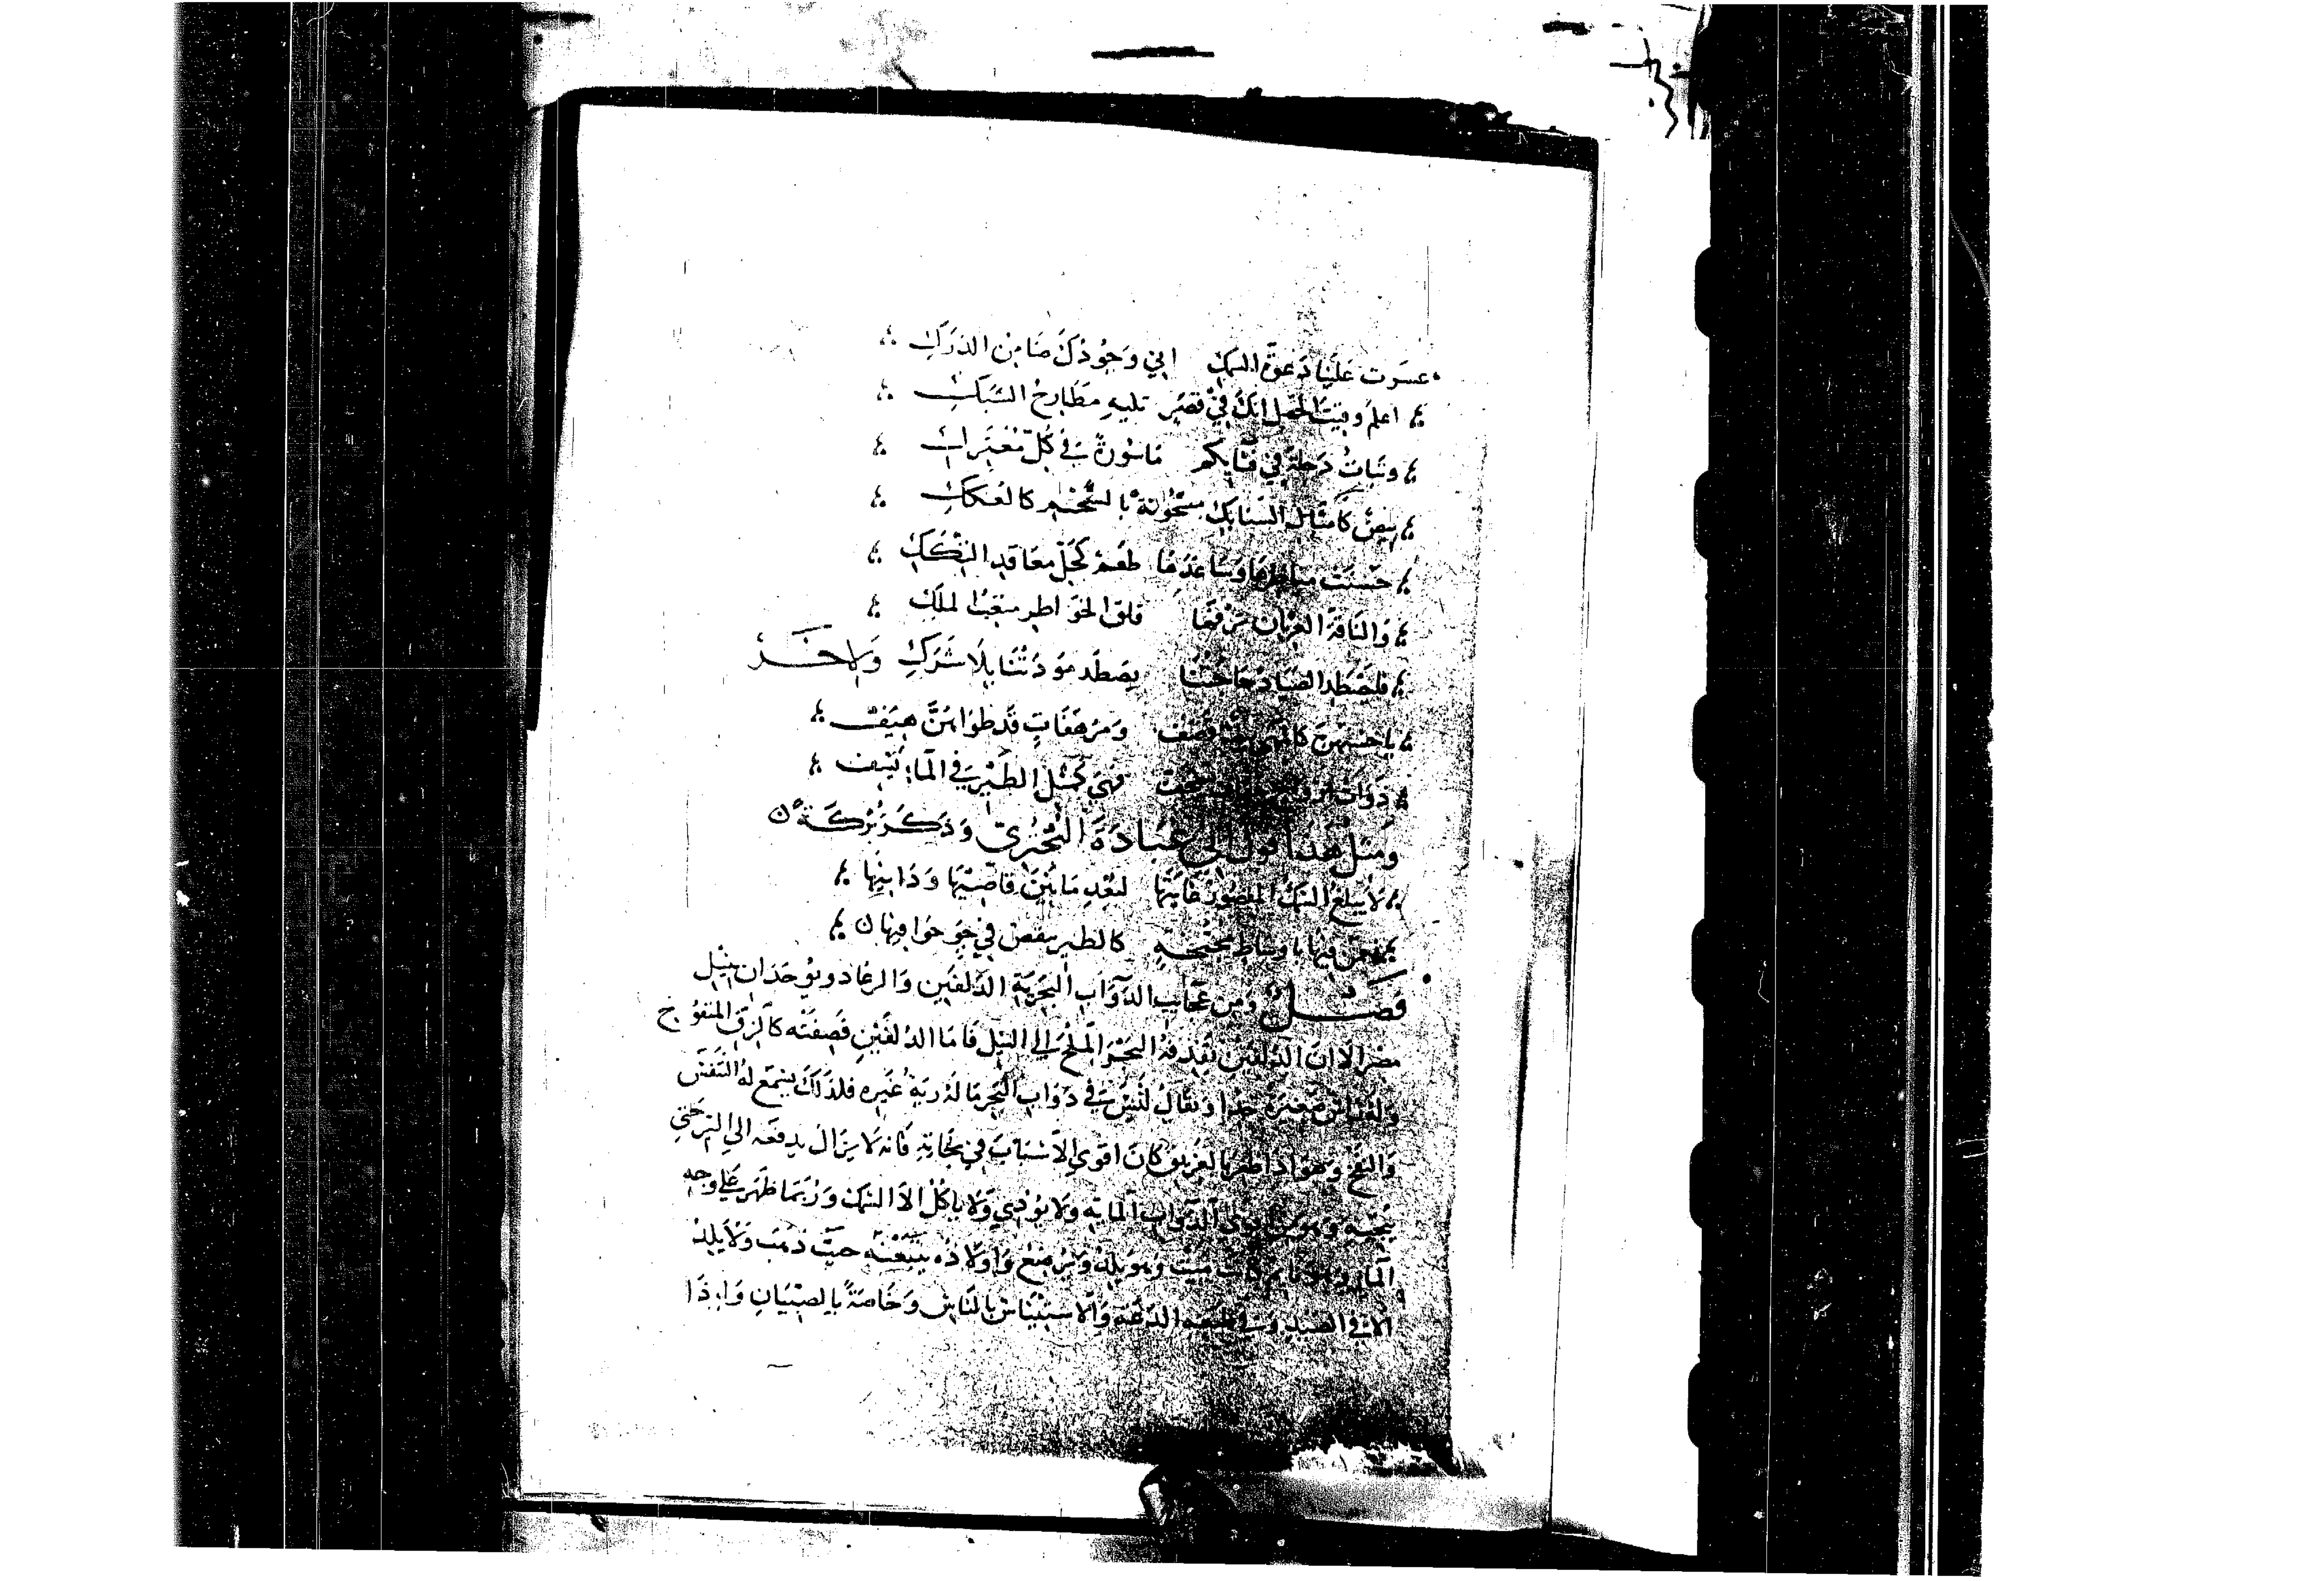 عسرت علينا دعوة السمك اني وجودك ضامن الدرك
اعلم وقيت الجهل انك في قصر تليه مطارح الشبك
وبنات دجلة في فنايكم ماسورة في كل معترك
بيض كامثال السبايك مشحونة بالشحم كالعكك
حسنت مناظرها وساعدها طعم كحل معاقد التكك
والناقة العريان مرفقها قلق الخواطر متعب الملك
فليصطد الصياد حاجتنا يصطد مودتنا بلا شرك ولاخـــر
ومرهفات قد طواهن هيف
ذوات فهي كمثل الطير في الماء تيف
ومثل هذا قول ابي عبادة البحتري وذكر بركة
لا يبلغ السمك المحصور غايتها لبعد ما بين قاصيها ودانيها
يعمن فيها باوساط مجنحة كالطير ينفض في جو خوافيها
فصـــل ومن عجايب الدواب البحرية الدلفين والرعاد ويوجدان بنيل
مصر الا ان الدلفين يقذفه البحر الملح الى النيل فاما الدلفين فصفته كالزق المنفوخ
وله راس صغيره جدا ويقال ليس في دواب البحر ما له رية غيره فلذلك يسمع له النفس
والنفخ وهو اذا ظفر بالغريق كان اقوى الاسباب في نجاته فانه لا يزال يدفعه الى البر حتى
ينجيه وهو من اقوى الدواب المايه ولا يوذي ولا ياكل الا السمك وربما ظهر على وجه
الماء وهو نايم كانه ميت وهو يلد ويرضع واولاده يتبعنه حيث ذهب ولا يلد
الا في الصيف وفي طبعه الدعة والاستيناس بالناس وخاصة بالصبيان واذا